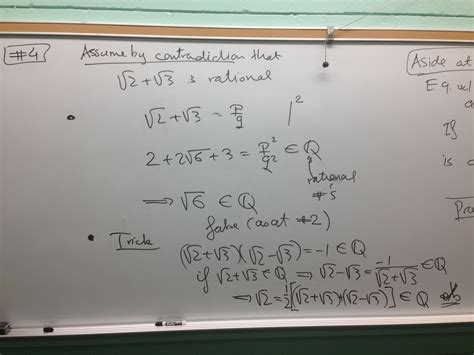 #4 Assume by contradiction that
√2 + √3 is rational
• √2 + √3 = p/q |²
2 + 2√6 + 3 = p²/q² ∈ Q
rational
#'s
⟹ √6 ∈ Q
false (as at #2)
• Trick
(√2 + √3)(√2 − √3) = −1 ∈ Q
if √2 + √3 ∈ Q ⟹ √2 − √3 = −1/(√2 + √3) ∈ Q
⟹ √2 = ½[(√2 + √3) + (√2 − √3)] ∈ Q
Aside at
Eq. w/
If
is